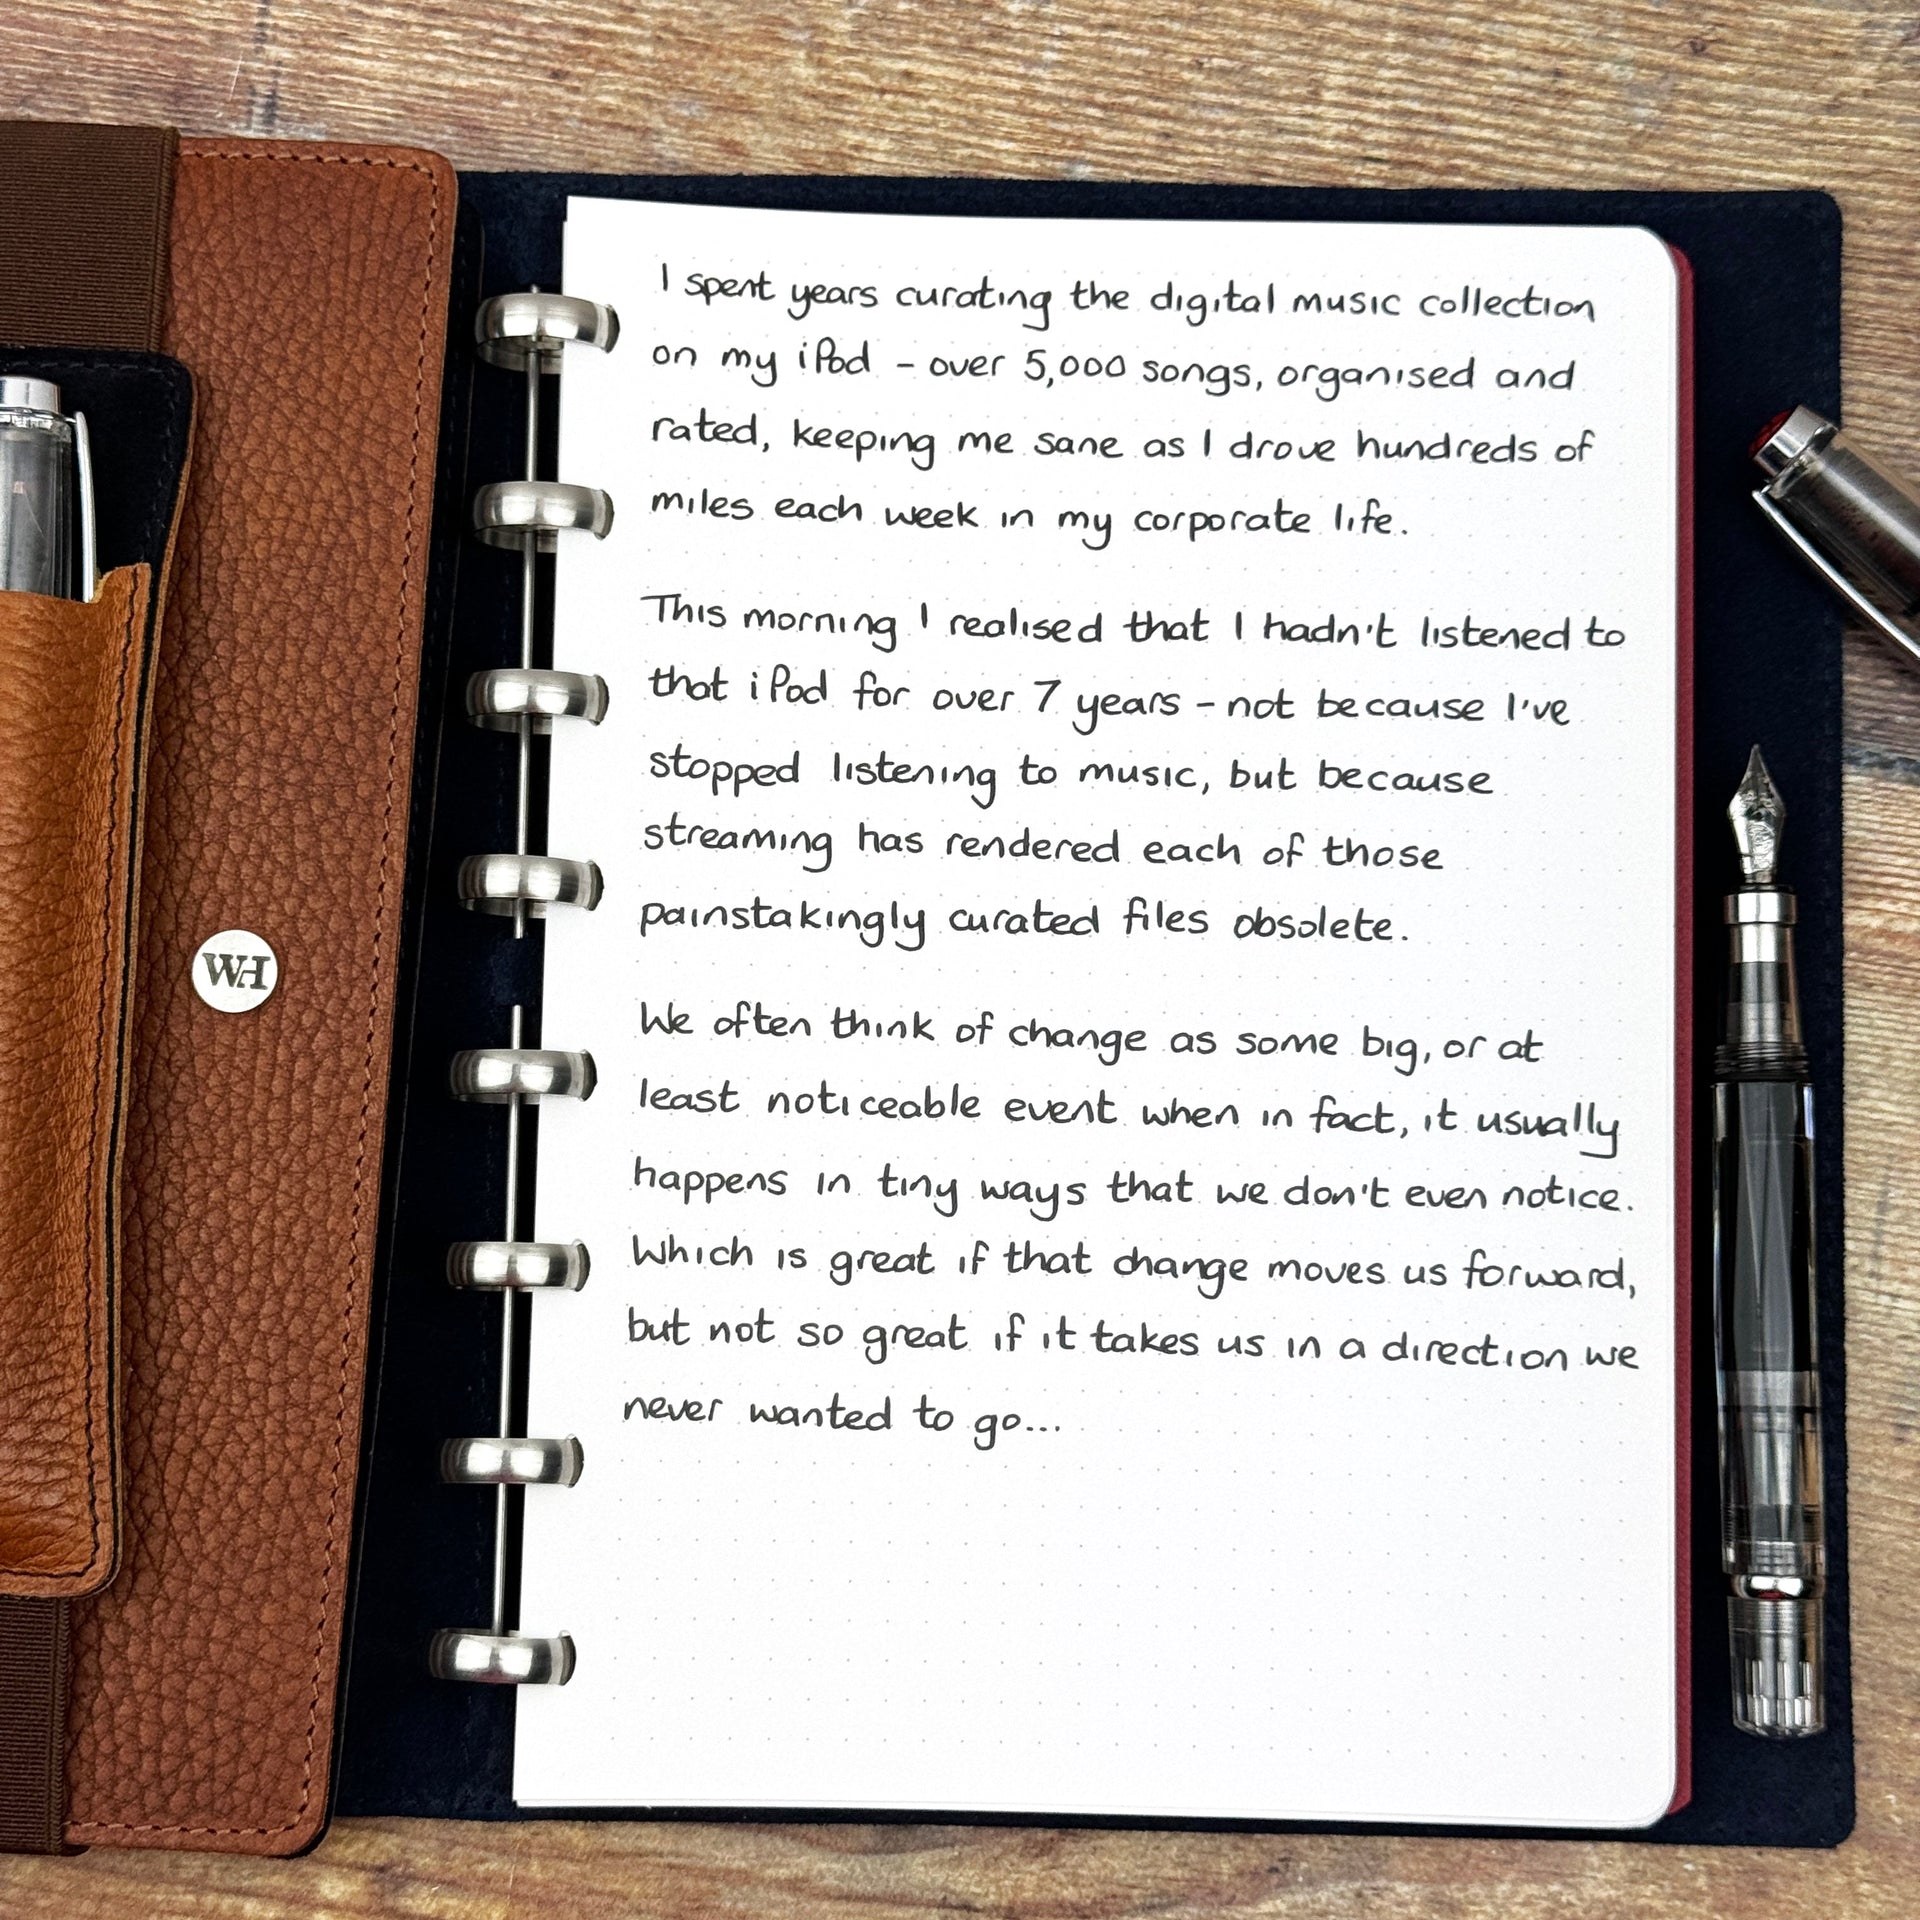 WH
I spent years curating the digital music collection
on my iPod - over 5,000 songs, organised and
rated, keeping me sane as I drove hundreds of
miles each week in my corporate life.
This morning I realised that I hadn't listened to
that iPod for over 7 years - not because I've
stopped listening to music, but because
streaming has rendered each of those
painstakingly curated files obsolete.
We often think of change as some big, or at
least noticeable event when in fact, it usually
happens in tiny ways that we don't even notice.
Which is great if that change moves us forward,
but not so great if it takes us in a direction we
never wanted to go...